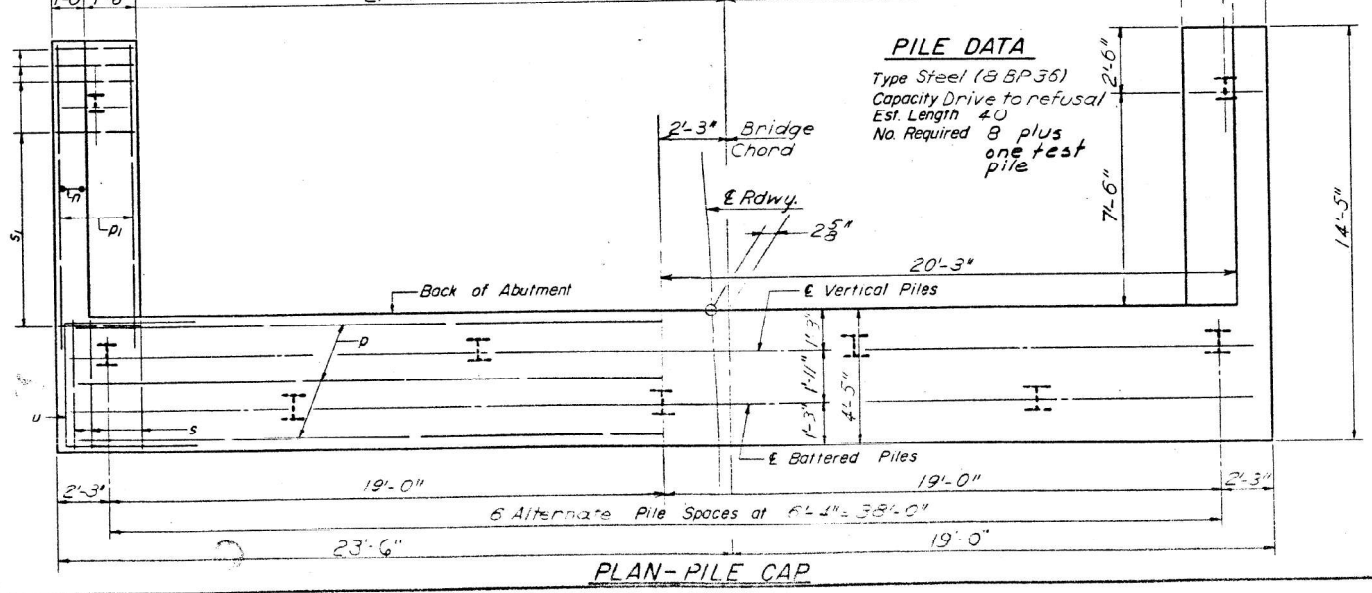 1'-0" 1'-6"
PILE DATA
Type Steel (8 BP 36)
Capacity Drive to refusal
Est. Length 40
No. Required 8 plus
one test
pile
2'-6"
7'-6"
14'-5"
2'-3" Bridge
Chord
℄ Rdwy.
2 5/8"
20'-3"
n
p1
s1
Back of Abutment
℄ Vertical Piles
p
1'-3"
1'-11"
1'-3"
4'-5"
u
s
℄ Battered Piles
2'-3" 19'-0" 19'-0" 2'-3"
6 Alternate Pile Spaces at 6'-4"=38'-0"
23'-6" 19'-0"
PLAN-PILE CAP